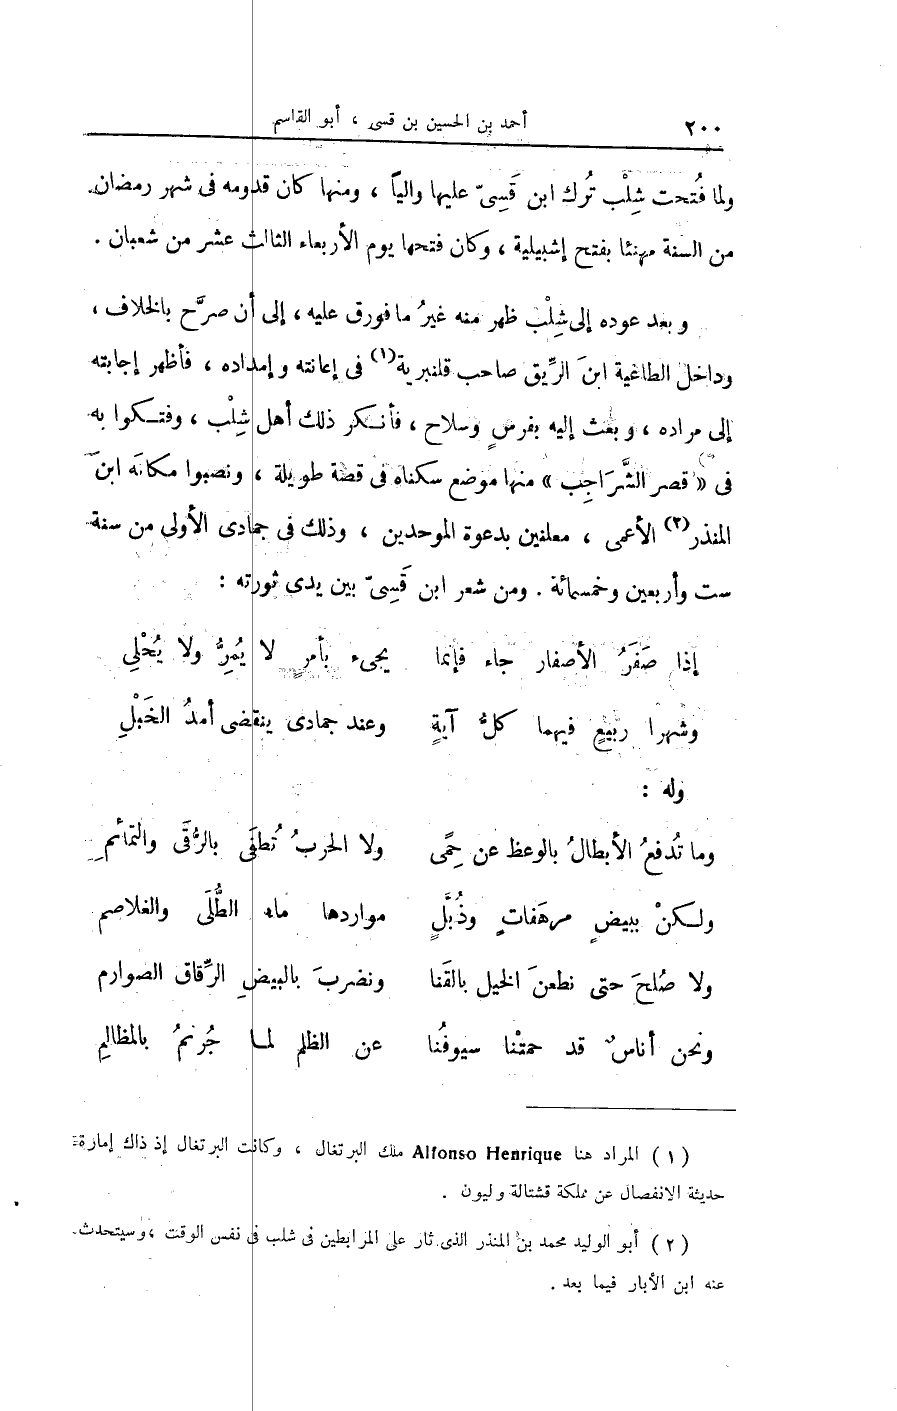 ٢٠٠ أحمد بن الحسين بن قسى ، أبو القاسم
ولما فُتحت شِلْب تُرك ابن قَسِىّ عليها والياً ، ومنها كان قدومه فى شهر رمضان
من السنة مهنئا بفتح إشبيلية ، وكان فتحها يوم الأربعاء الثالث عشر من شعبان .
وبعد عوده إلى شِلْب ظهر منه غيرُ ما فورق عليه ، إلى أن صرَّح بالخلاف ،
وداخل الطاغية ابنَ الرِّيق صاحب قلنبرية(١) فى إعانته وإمداده ، فأظهر إجابته
إلى مراده ، وبعث إليه بفرسٍ وسلاح ، فأنكر ذلك أهل شِلْب ، وفتكوا به
فى « قصر الشَّرَاجِب » منها موضع سكناه فى قصة طويلة ، ونصبوا مكانَه ابنَ
المنذر(٢) الأعمى ، معلنين بدعوة الموحدين ، وذلك فى جمادى الأولى من سنة
ست وأربعين وخمسمائة . ومن شعر ابن قَسِىّ بين يدى ثورته :
إذا صَفَرُ الأصفار جاء فإنما يجىء بأمرٍ لا يُمِرُّ ولا يُحْلِى
وشهرا ربيعٍ فيهما كلُّ آيةٍ وعند جمادى ينقضى أمدُ الخَبْلِ
وله :
وما تُدفعُ الأبطالُ بالوعظ عن حِمًى ولا الحربُ تُطفَى بالرُّقَى والتمائمِ
ولكنْ ببيضٍ مرهَفاتٍ وذُبَّلٍ مواردها ماء الطُّلَى والغلاصم
ولا صُلحَ حتى نطعنَ الخيل بالقَنا ونضربَ بالبيضِ الرِّقاق الصوارم
ونحن أناسٌ قد حمتْنا سيوفُنا عن الظلم لما جُرتمُ بالمظالِمِ
(١) المراد هنا Alfonso Henrique ملك البرتغال ، وكانت البرتغال إذ ذاك إمارة
حديثة الانفصال عن مملكة قشتالة وليون .
(٢) أبو الوليد محمد بن المنذر الذى ثار على المرابطين فى شلب فى نفس الوقت ، وسيتحدث
عنه ابن الأبار فيما بعد .